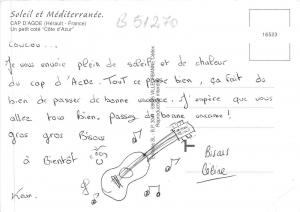 B 51270
Soleil et Méditerranée.
CAP D'AGDE (Hérault - France)
Un petit coté "Côte d'Azur"
16523
Coucou...
Je vous envoie plein de soleil et de chaleur
du cap d'Agde. Tout ce passe bien, ça fait du
bien de passer de bonne vacance. J'espère que vous
allez tous bien. Passez de bonne vacance!
gros gros Bisous
à Bientôt
Bisous
Céline